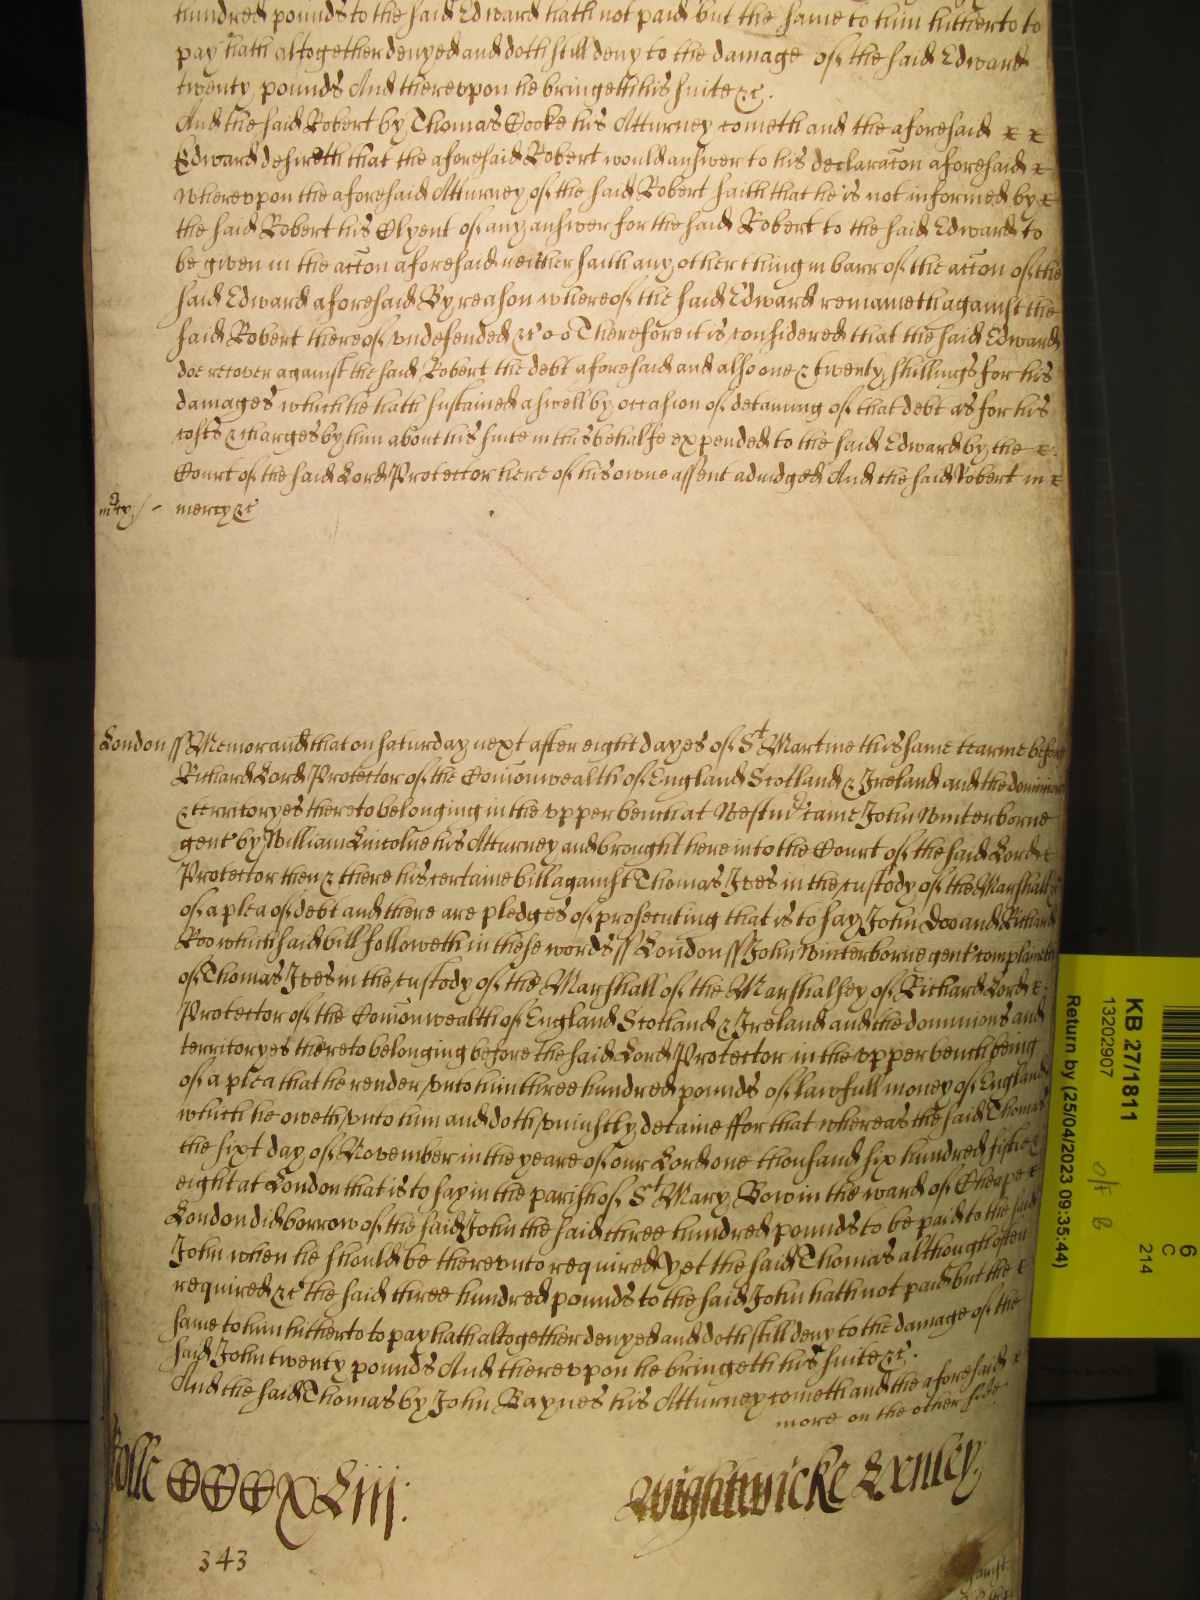 hundred pounds to the said Edward hath not paid but the same to him hitherto to
pay hath altogether denyed and doth still deny to the damage of the said Edward
twenty pounds And thereupon he bringeth his suite &c.
And the said Robert by Thomas Cooke his Atturney cometh and the aforesaid
Edward desireth that the aforesaid Robert would answer to his declaracon aforesaid
Whereupon the aforesaid Atturney of the said Robert saith that he is not informed by
the said Robert his Clyent of any answer for the said Robert to the said Edward to
be given in the accon aforesaid neither saith any other thing in barr of the accon of the
said Edward aforesaid By reason whereof the said Edward remaineth against the
said Robert thereof vndefended &c Therefore it is considered that the said Edward
doe recover against the said Robert the debt aforesaid and also one & twenty shillings for his
damages which he hath sustained aswell by occasion of detaining of that debt as for his
costs & charges by him about his suite in this behalfe expended to the said Edward by the
Court of the said Lord Protector here of his owne assent adiudged And the said Robert in
mercy &c
London ss Memorand that on Saturday next after eight dayes of St Martine this same tearme before
Richard Lord Protector of the Comonwealth of England Scotland & Ireland and the dominions
& territoryes thereto belonging in the vpper bench at Westmr came John Winterborne
gent by William Lincolne his Atturney and brought here into the Court of the said Lord
Protector then & there his certaine bill against Thomas Ives in the custody of the Marshall &c
of a plea of debt and there are pledges of prosecuting that is to say John Doo and Richard
Roo which said bill followeth in these words ss London ss John Winterborne gent complaineth
of Thomas Ives in the custody of the Marshall of the Marshalsey of Richard Lord
Protector of the Comonwealth of England Scotland & Ireland and the dominions and
territoryes thereto belonging before the said Lord Protector in the vpper bench being
of a plea that he render vnto him three hundred pounds of lawfull money of England
which he oweth vnto him and doth vniustly detaine ffor that whereas the said Thomas
the sixt day of November in the yeare of our Lord one thousand six hundred fiftie &
eight at London that is to say in the parish of St Mary Bow in the ward of Cheape
London did borrow of the said John the said three hundred pounds to be paid to the said
John when he should be therevnto required yet the said Thomas although often
required &c the said three hundred pounds to the said John hath not paid but the
same to him hitherto to pay hath altogether denyed and doth still deny to the damage of the
said John twenty pounds And therevpon he bringeth his suite &c.
And the said Thomas by John Baynes his Atturney cometh and the aforesaid
more on the other side
Rolle CCCXLiij:
343
KB 27/1811
13202907
Return by (25/04/2023 09:35:44)
6
C
214